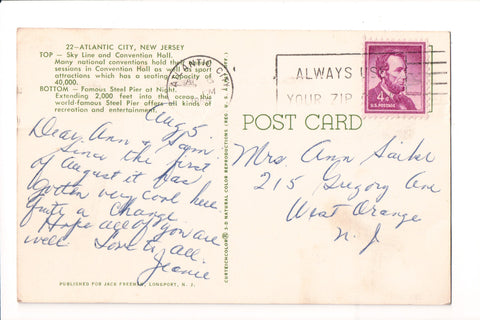 22-ATLANTIC CITY, NEW JERSEY
TOP — Sky Line and Convention Hall.
Many national conventions hold their
sessions in Convention Hall as well as sport
attractions which has a seating capacity of
40,000.
BOTTOM — Famous Steel Pier at Night.
Extending 2,000 feet into the ocean, this
world-famous Steel Pier offers all kinds of
recreation and entertainment.
Aug 5.
Dear Ann & Sam.
Since the first
of August it has
gotten very cool here.
Quite a change.
Hope all of you are
well. Love to all.
Jeanie
PUBLISHED FOR JACK FREEMAN, LONGPORT, N. J.
ATLANTIC CITY
PM
ALWAYS
YOUR ZIP
4¢
U.S. POSTAGE
POST CARD
Mrs. Ann
215 Gregory Ave
West Orange
N. J.